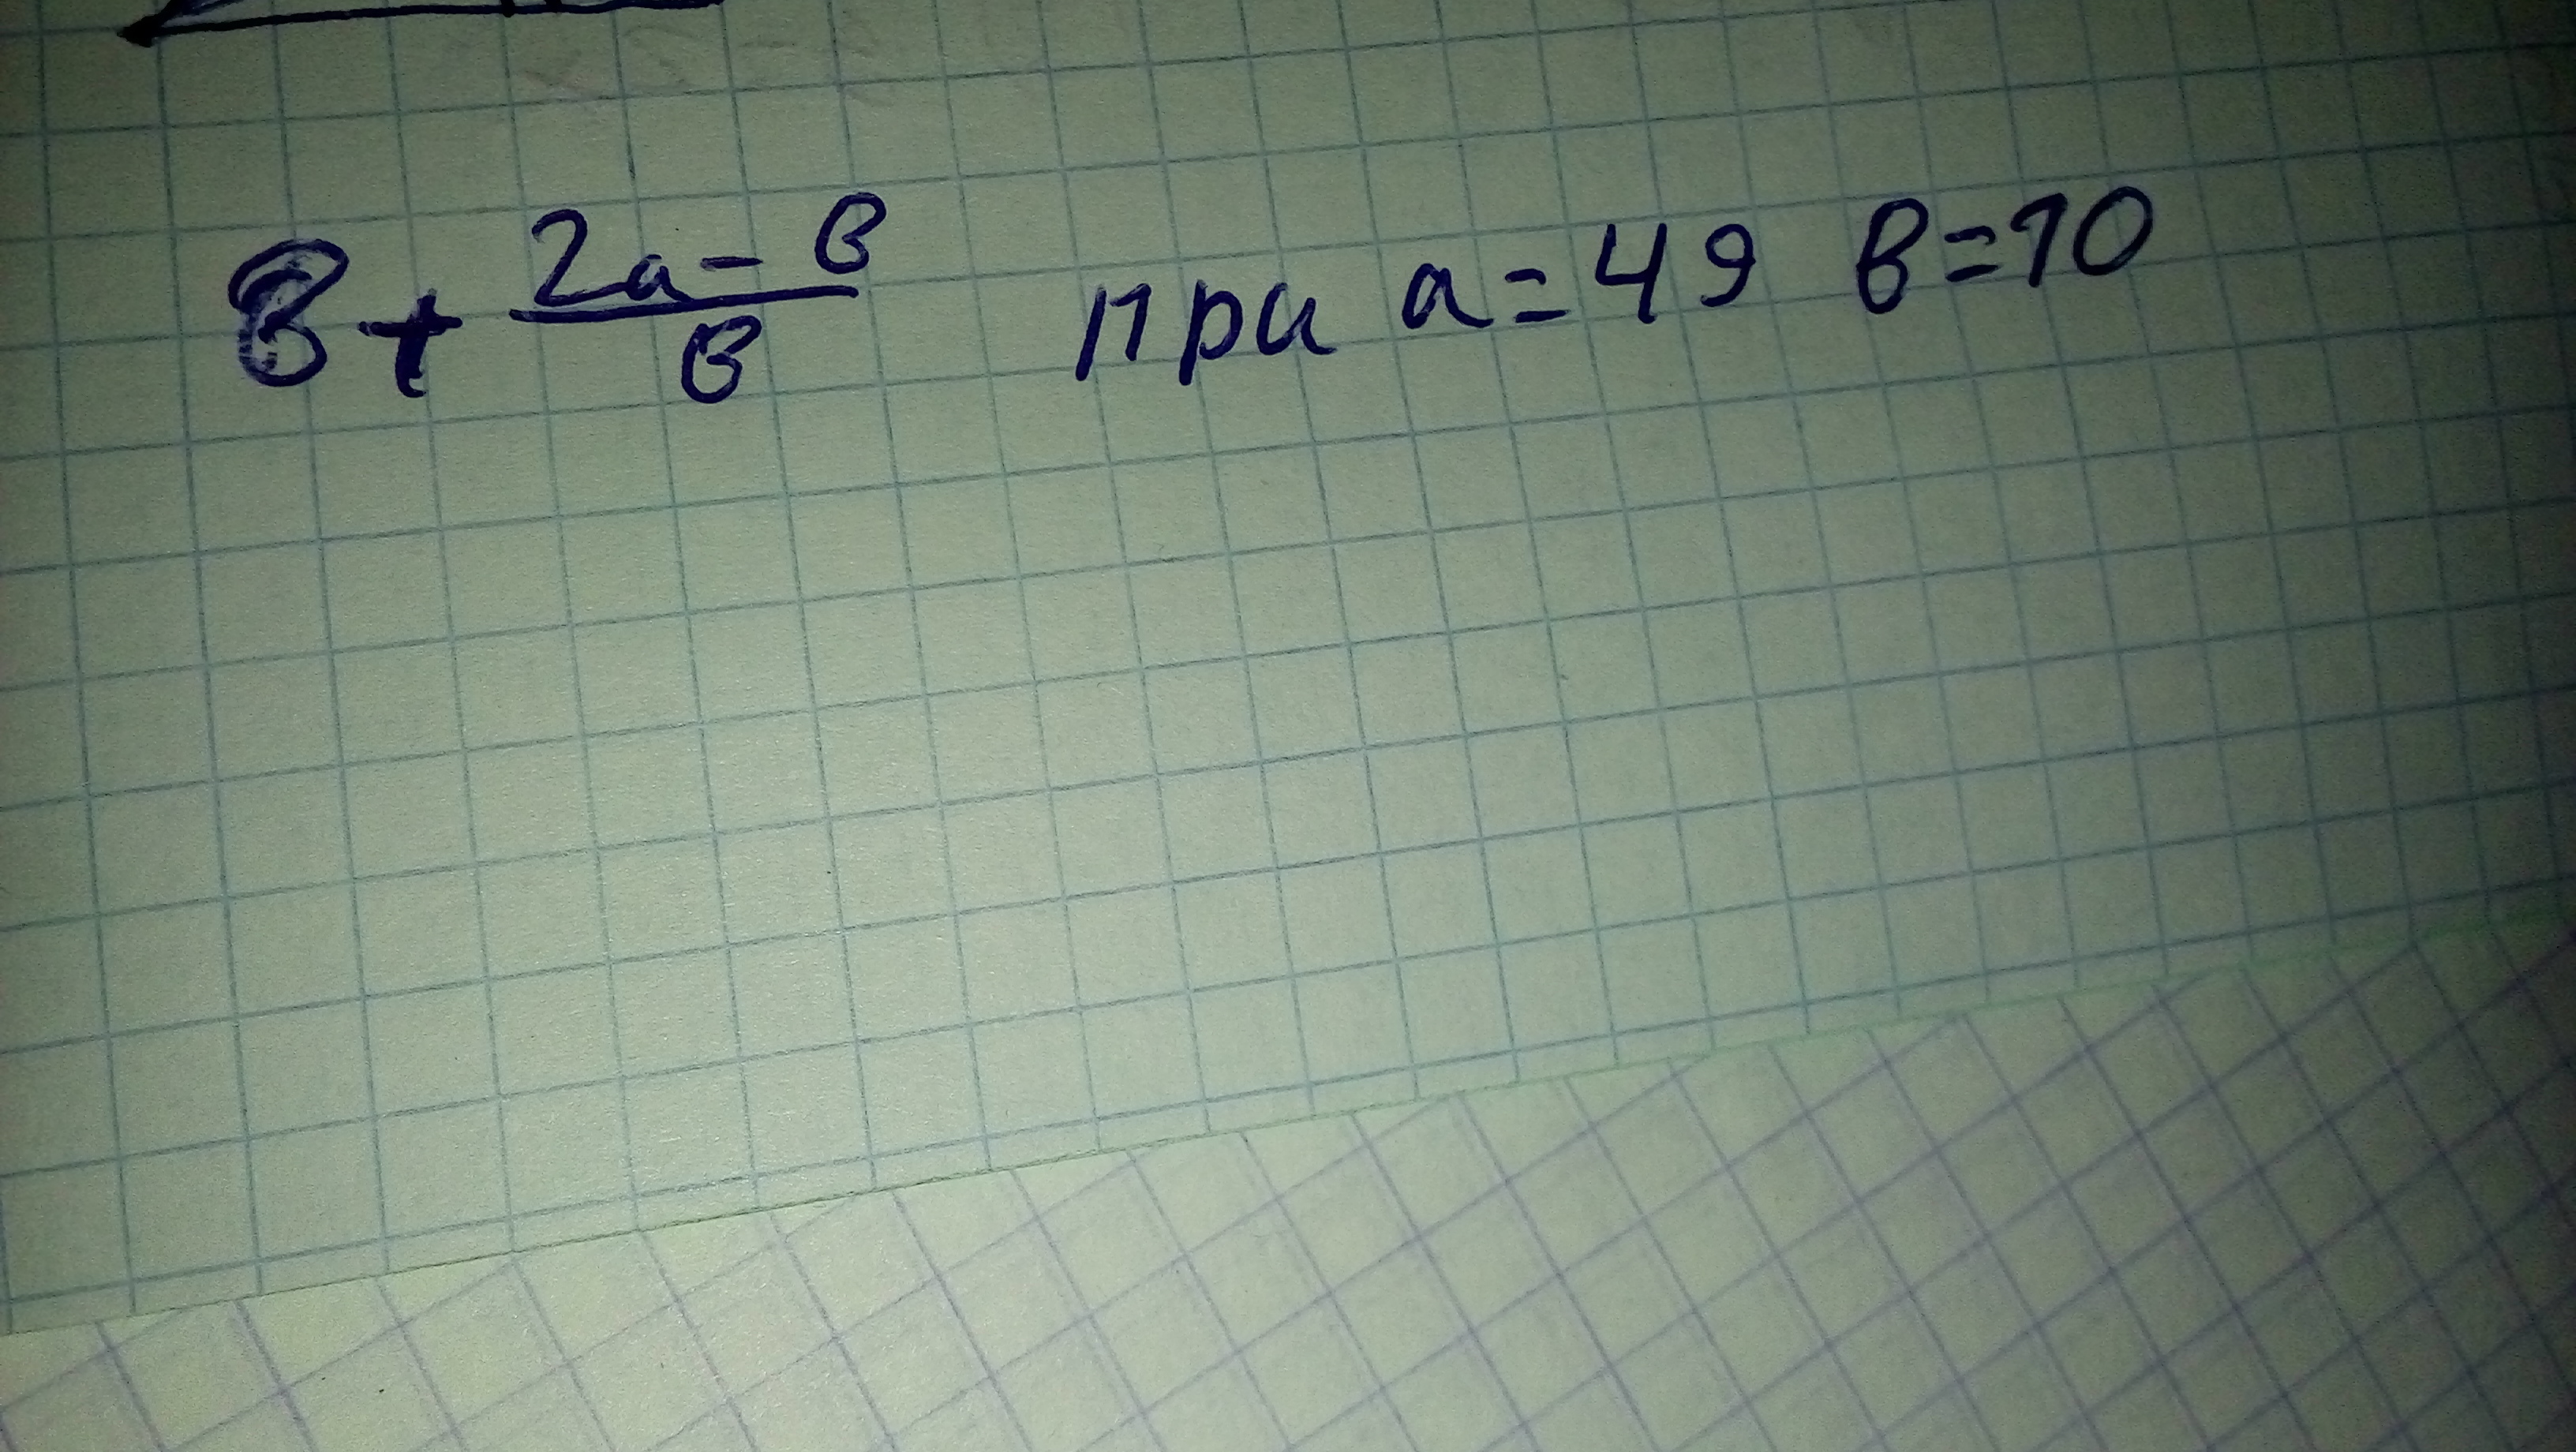 в + (2a - в)/в при a = 49 в = 10